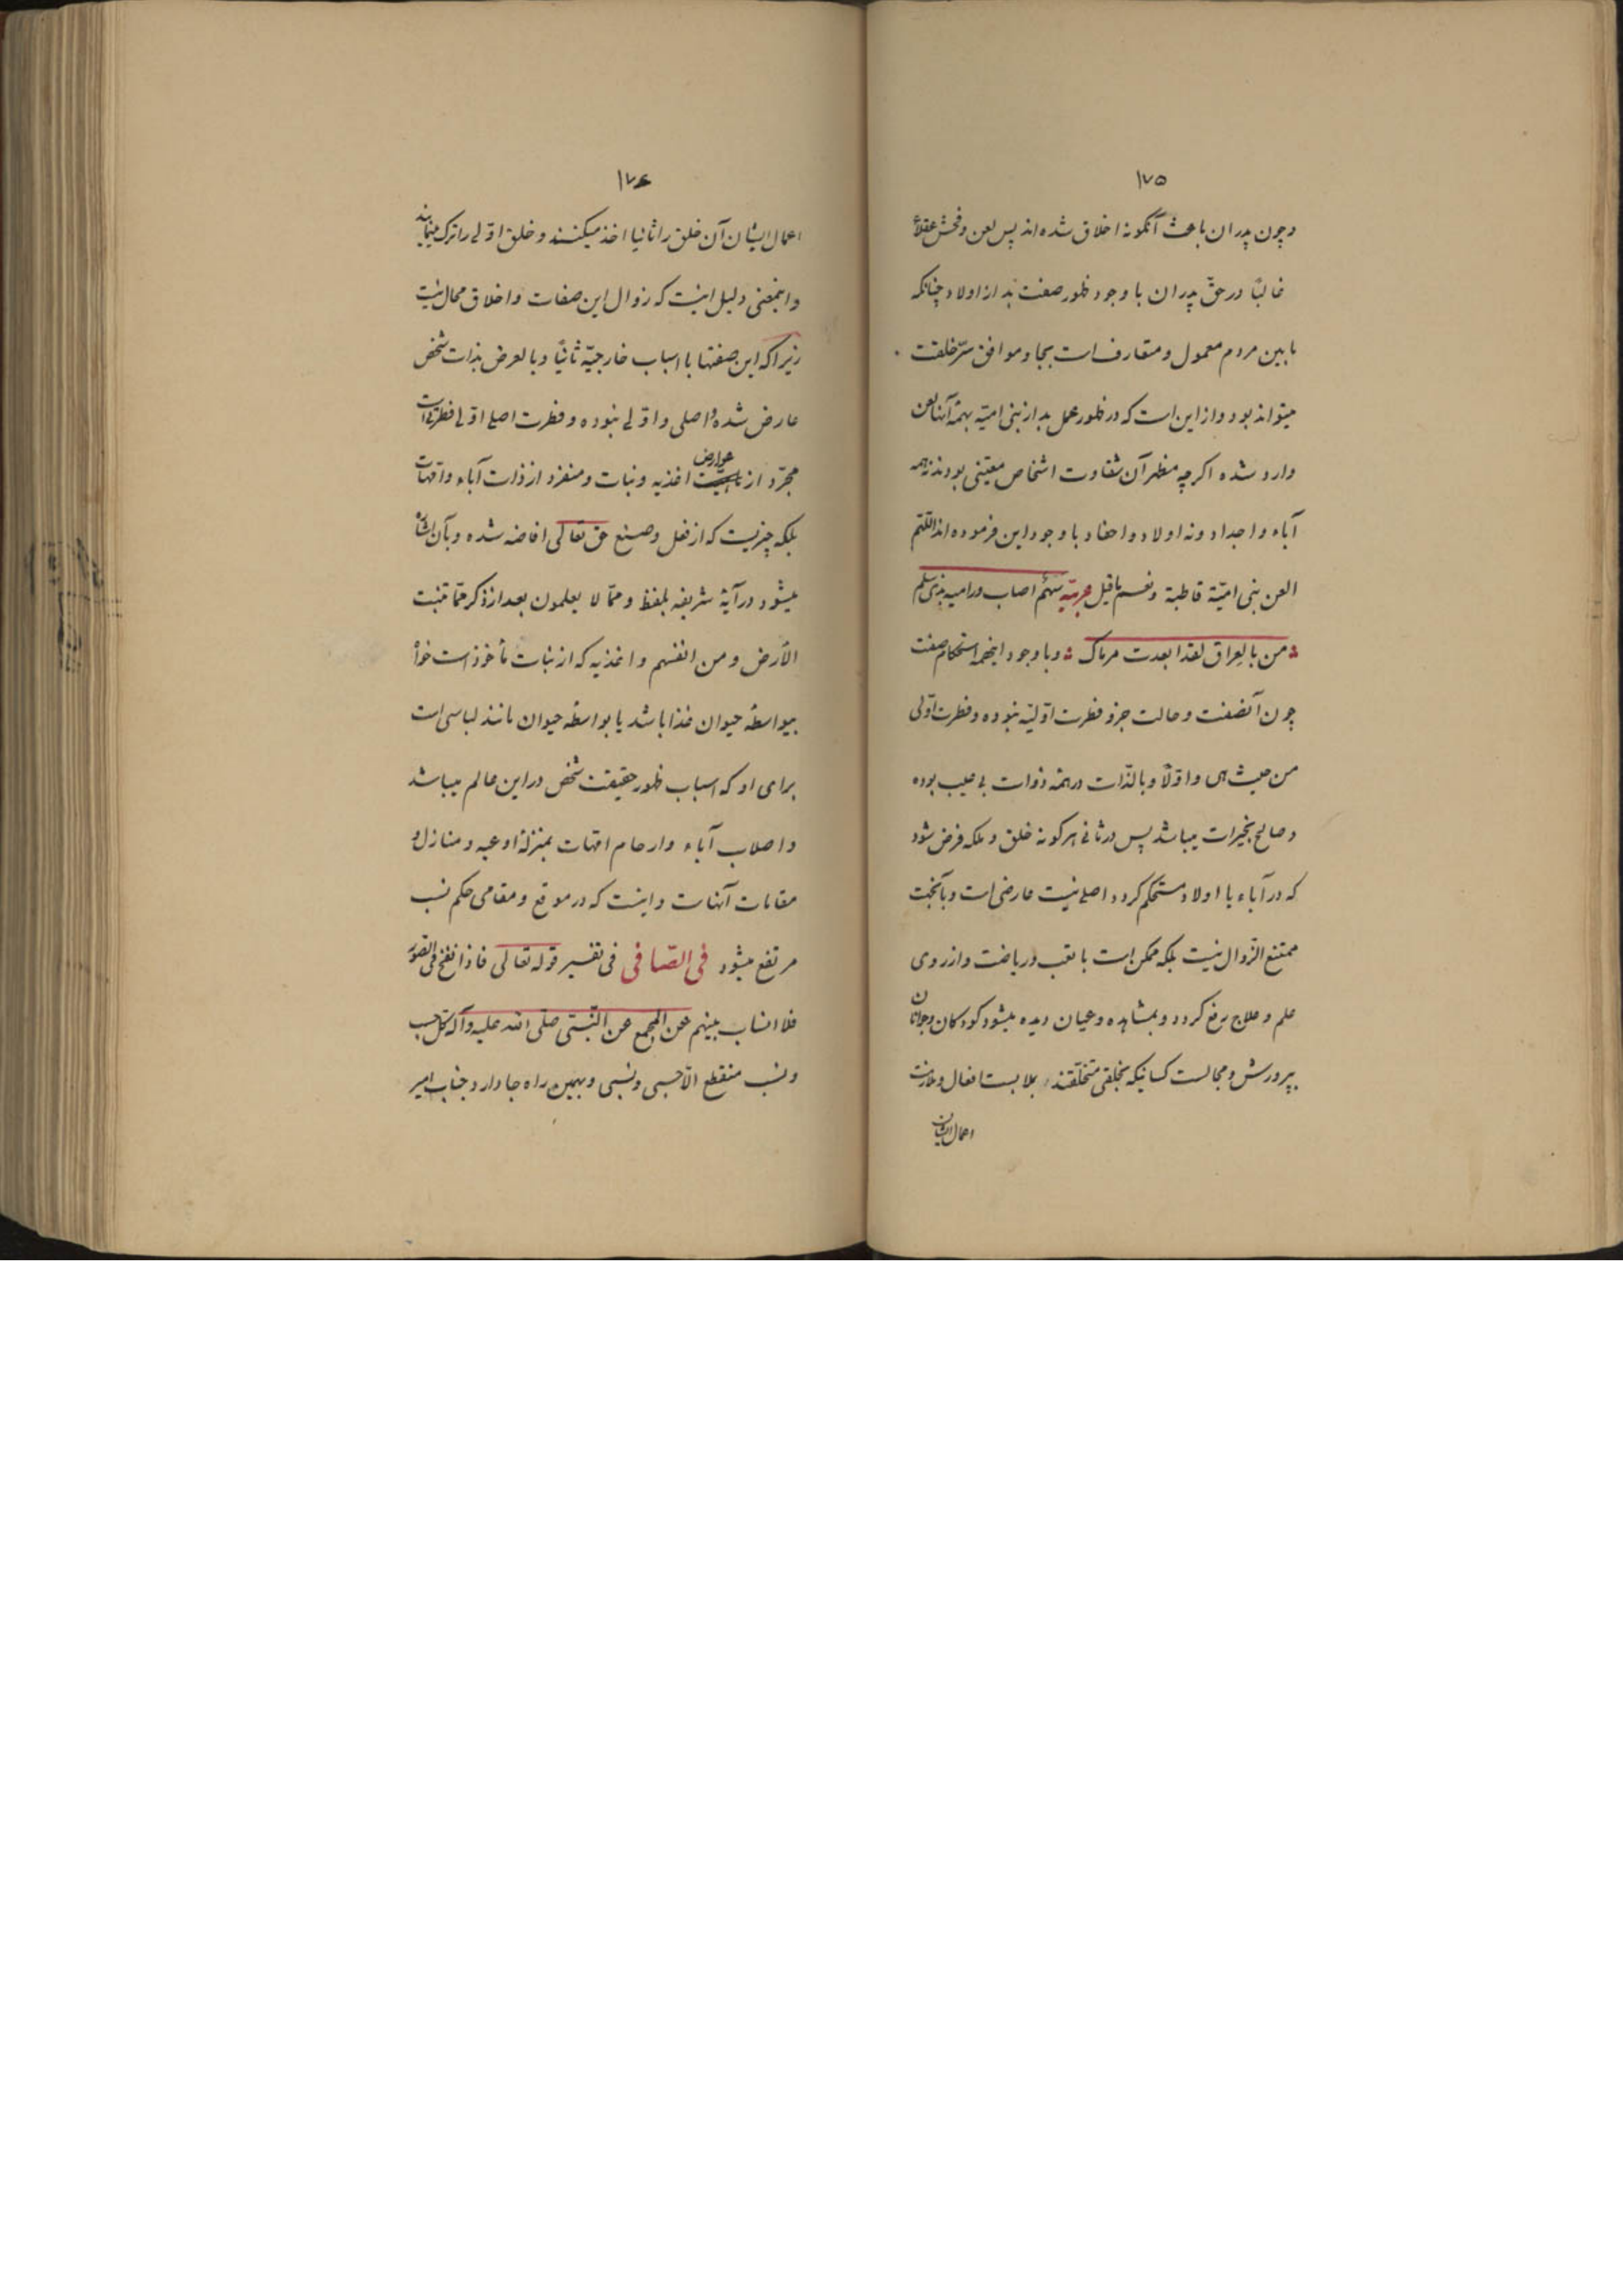 ۱۷۵
و چون پدران باعث آنگونه اخلاق شده اند پس لعن و فحش عقلاء
غالبًا در حقّ پدران با وجود ظهور صفت بد از اولاد چنانکه
ما بین مردم معمول و متعارف است بجا و موافق سرّ خلقت
میتواند بود و از این است که در ظهور عمل بد از بنی امیّه بهمهٔ آنها لعن
وارد شده اکرچه مظهر آن شقاوت اشخاص معیّنی بودند نه همه
آباء و اجداد و نه اولاد و احفاد با وجود این فرموده اند اللّهم
العن بنی امیّة قاطبة و نعم ما قیل عربیّه سهم اصاب و رامیه بذی سلم
من بالعراق لقد ابعدت مرماک و با وجود اینهمه استحکام صفت
چون آنصفت و حالت جزو فطرت اوّلیّه نبوده و فطرت اوّلی
من حیث هی و اوّلًا و بالذّات در همه ذوات بی عیب بوده
و صالح بخیرات میباشد پس در ثانی هر کونه خلق و ملکه فرض شود
که در آباء یا اولاد مستحکم کردد اصلی نیست عارضی است و بآنجهت
ممتنع الزّوال نیست بلکه ممکن است با تعب و ریاضت و از روی
علم و علاج رفع کردد و بمشاهده و عیان دیده میشود کودکان و جوانان
بپرورش و مجالست کسانیکه بخلقی متخلّقند بملابست افعال و ملازمت
اعمال ایشان
۱۷۶
اعمال ایشان آن خلق را ثانیا اخذ میکنند و خلق اوّلی را ترک مینمایند
و اینمعنی دلیل اینست که زوال این صفات و اخلاق محال نیست
زیرا که این صفتها با اسباب خارجیّه ثانیًا و بالعرض بذات شخص
عارض شده و اصلی و اوّلی نبوده و فطرت اصلی اوّلی فطرتی است
مجرّد از عوارض اغذیه و نبات و منفرد از ذات آباء و امّهات
بلکه چیزیست که از فعل و صنع حق تعالی افاضه شده و بآن اشاره
میشود در آیهٔ شریفه بلفظ و ممّا لا یعلمون بعد از ذکر ممّا تنبت
الأرض و من انفسهم و اغذیه که از نبات مأخوذ است خواه
بیواسطه حیوان غذا باشد یا بواسطه حیوان مانند لباسی است
برای او که اسباب ظهور حقیقت شخص در این عالم میباشد
و اصلاب آباء و ارحام امّهات بمنزلهٔ اوعیه و منازل و
مقامات آنهاست و اینست که در موقع و مقامی حکم نسب
مرتفع میشود فی الصّافی فی تفسیر قوله تعالی فاذا نفخ فی الصّور
فلا انساب بینهم عن المجمع عن النّبیّ صلّی اللّه علیه و آله کلّ حسب
و نسب منقطع الّا حسبی و نسبی و بهمین راه جا دارد جناب امیر